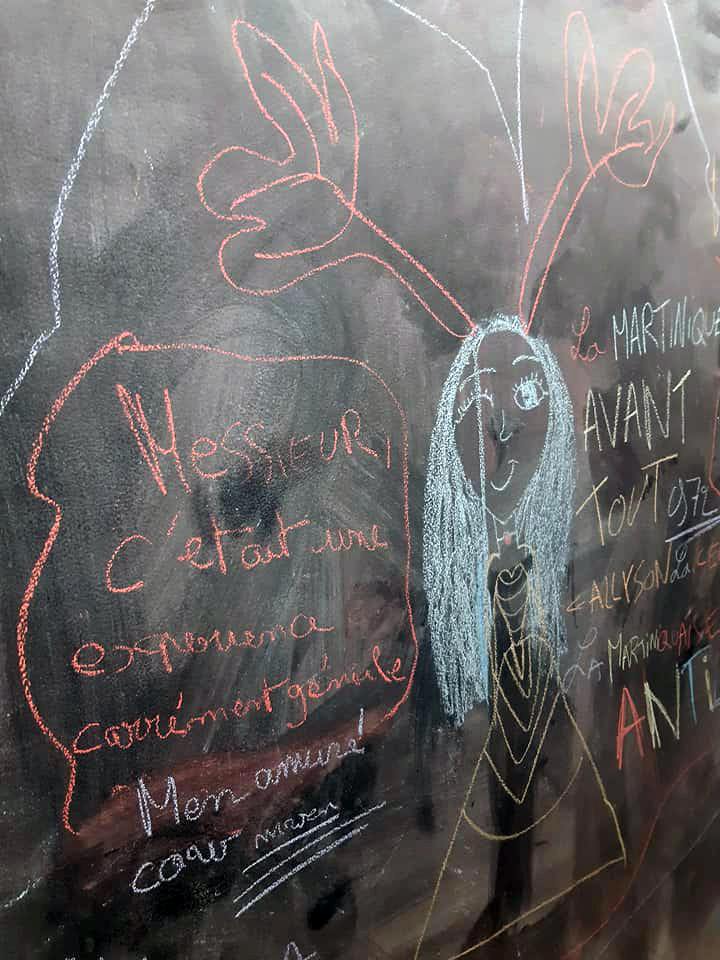 Messieur,
C'était une
experience
carrément géniale
Men amuré
cœur
La MARTINIQU
AVANT
TOUT 972
ALLYSON
LA MARTINIQUAISE
ANTi